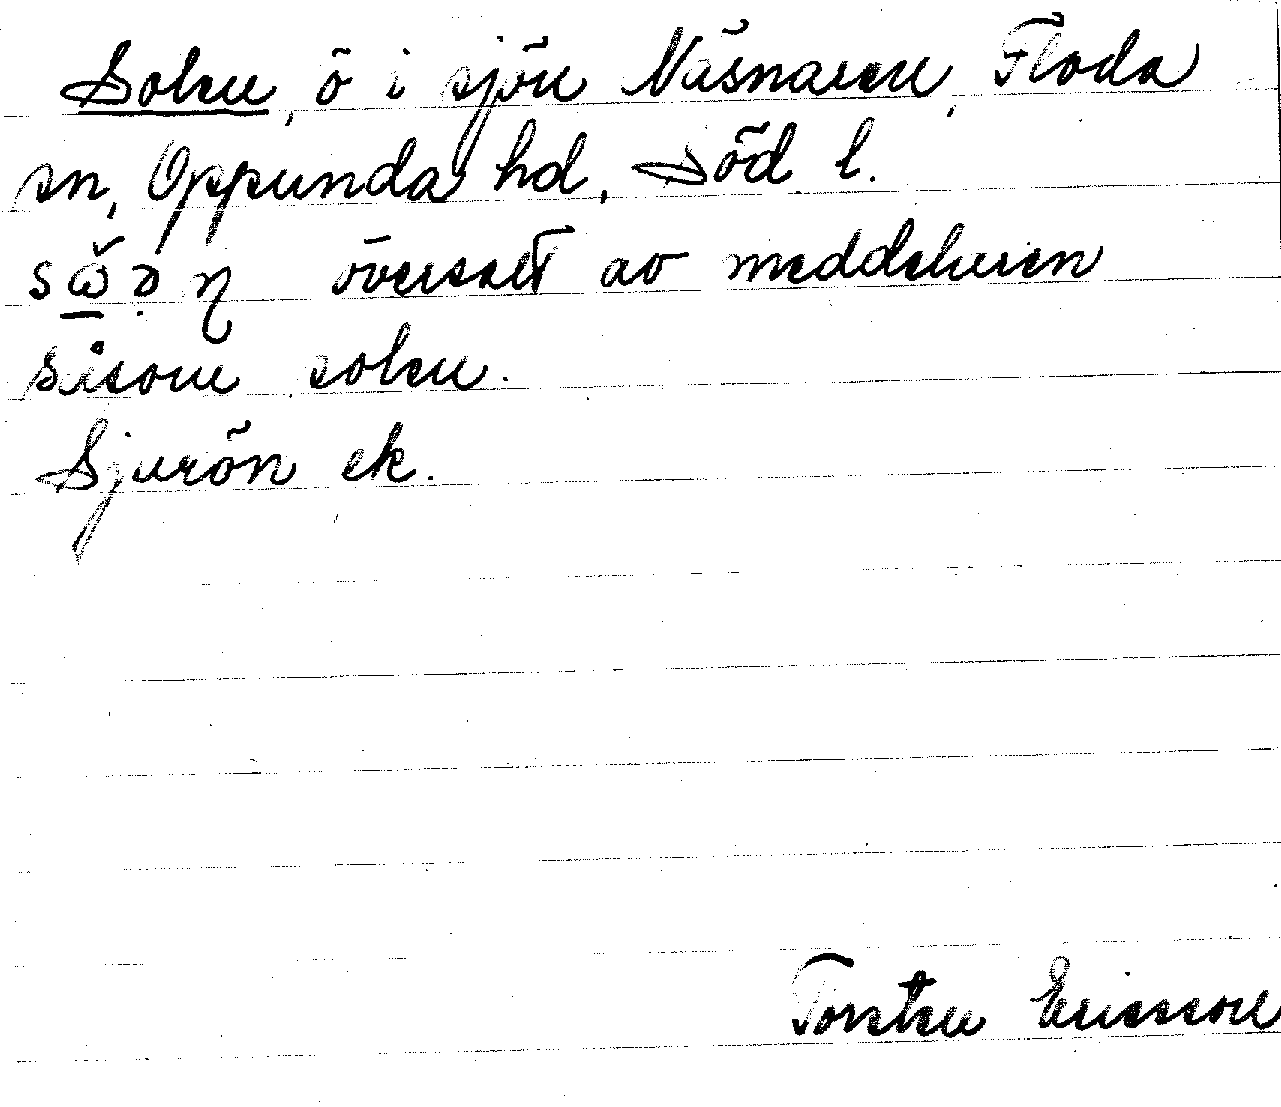 Solen, ö i sjön Näsnaren, Floda
sn, Oppunda hd, Söd. l.
översatt av meddelaren
såsom solen.
Sjurön ek.
Torsten Ericsson